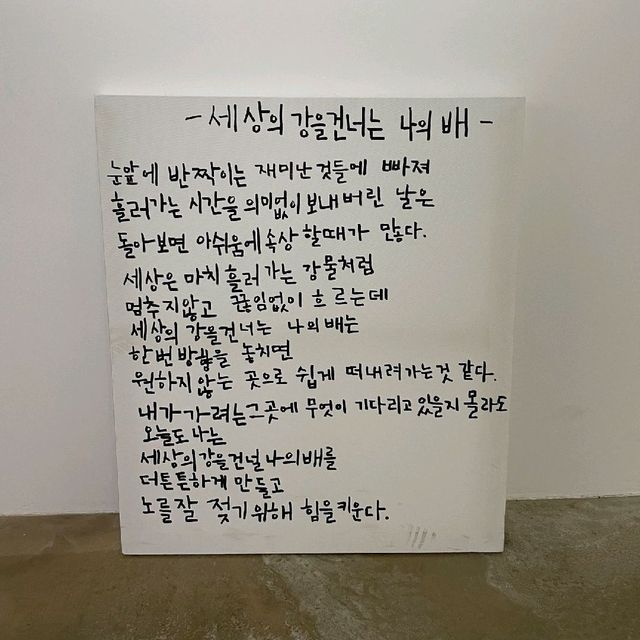 - 세상의 강을건너는 나의 배 -
눈앞에 반짝이는 재미난것들에 빠져
흘러가는 시간을 의미없이 보내버린 날은
돌아보면 아쉬움에 속상할때가 많다.
세상은 마치 흘러가는 강물처럼
멈추지않고 끊임없이 흐르는데
세상의 강을건너는 나의 배는
한번 방향을 놓치면
원하지 않는 곳으로 쉽게 떠내려가는것 같다.
내가 가려는그곳에 무엇이 기다리고 있을지 몰라도
오늘도 나는
세상의강을건널 나의배를
더튼튼하게 만들고
노를잘 젖기위해 힘을키운다.